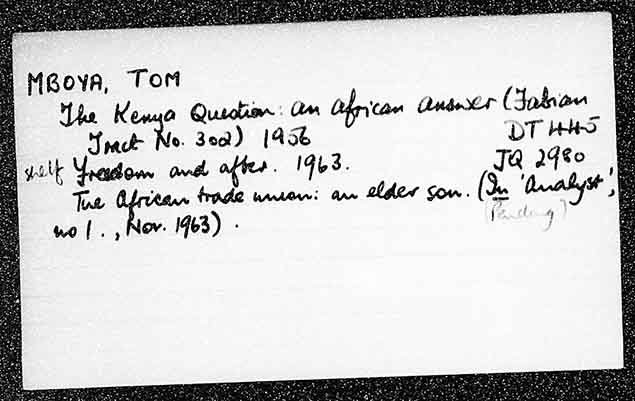 MBOYA, TOM
The Kenya Question: an African answer (Fabian
Tract No. 302) 1956 DT 445
shelf Freedom and after. 1963. JQ 2980
The African trade union: an elder son. (In 'Analyst',
no 1., Nov. 1963). (Pending)